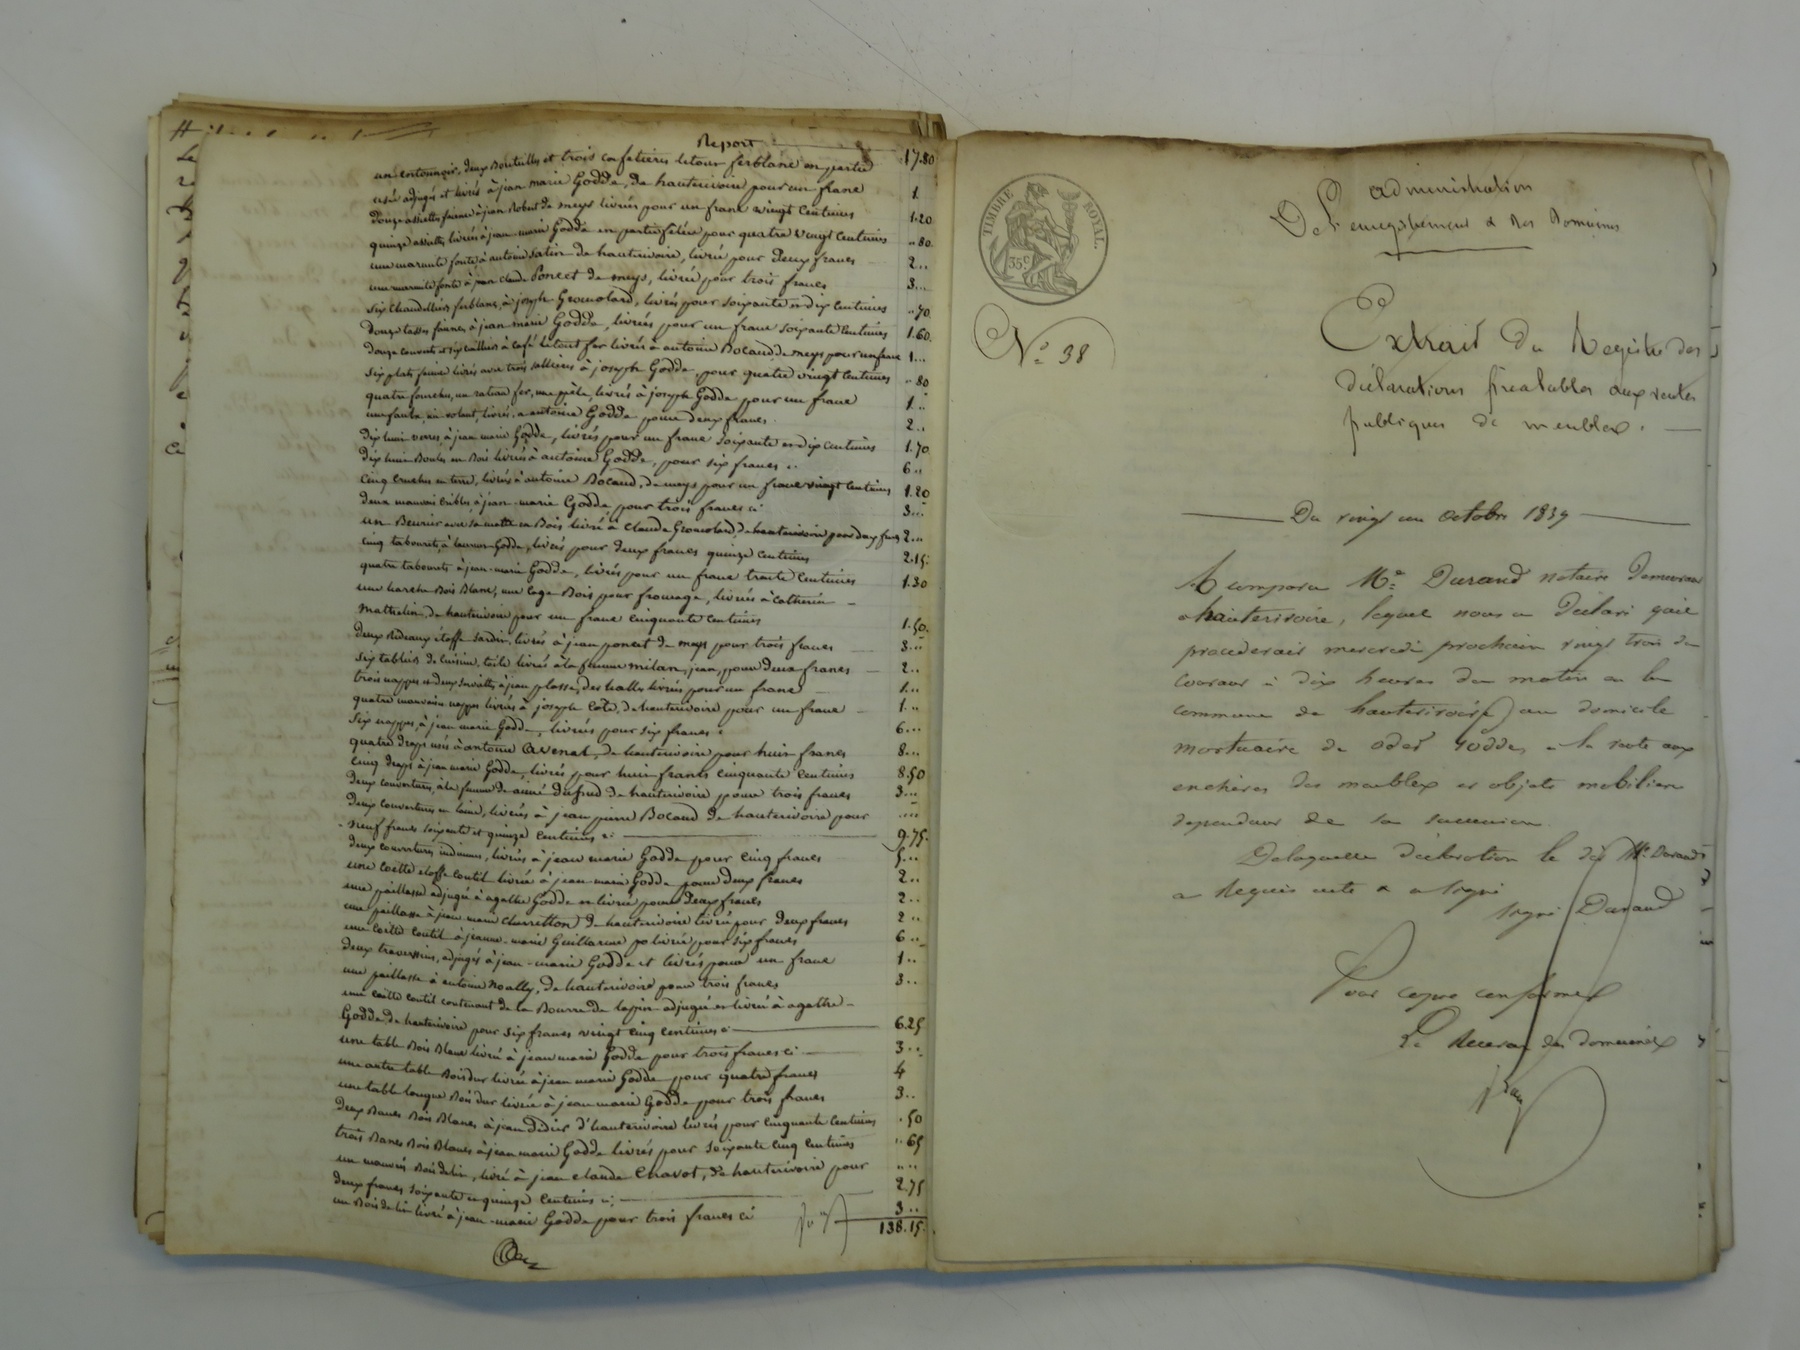 Report 17.80
un entonnoir, deux Bouteilles et trois cafetieres letout ferblanc en partie
usée adjugés et livrés à jean marie Godde, de hauterivoire pour un franc 1
Douze assiettes faience à jean Robert de meys livrés pour un franc vingt Centimes 1.20
quinze assiettes, livrées à jean-marie Godde en partie felées pour quatre vingt centimes "80
une marmite fonte à antoine Satin de hauterivoire, livrée pour Deux francs 2..
une marmite fonte à jean claude Poncet de meys, livrée pour trois francs 3...
six chandelliers ferblanc, à joseph Gromolard, livrés pour soixante et dix Centimes "70
douze tasses faience, à jean marie Godde, livrées pour un franc soixante Centimes 1.60
douze couverts et six cuilliers à café letout fer livrés à antoine Bocaud, de meys pour un franc 1...
six plats faience livrés avec trois sallieres à joseph Godde pour quatre vingt Centimes "80
quatre fourches, un rateau fer, une pèle, livrés à joseph Godde pour un franc 1..
une faulx, un volant, livrés, a antoine Godde pour deux francs. 2..
dix huit verres, à jean marie Godde, livrés pour un franc soixante et dix Centimes 1.70
dix huit Boules en Bois livrées à antoine Godde, pour six francs .. 6..
cinq cruches en terre, livrées à antoine Bocaud, de meys pour un franc vingt Centimes 1.20
deux mauvais cribles, à jean-marie Godde, pour trois francs ci 3...
un Beurrier avec sa motte en Bois livré à claude Gromolard, de hauterivoire pour deux francs 2...
cinq tabourets, à Godde, livrés pour deux francs quinze Centimes 2.15
quatre tabourets à jean-marie Godde, livrés pour un franc trente Centimes 1.30
une harche Bois Blanc, une cage Bois pour fromage, livrées à Catherin
Mathelin, de hauterivoire pour un franc cinquante Centimes 1.50
deux Rideaux étoffe Sardin, livrés à jean poncet de meys pour trois francs 3...
six tabliers de cuisine, toile livrés à la femme milan, jean, pour deux francs 2..
trois nappes et deux serviettes à jean plasse, des halles livrées pour un franc 1...
quatre mauvaises nappes livrées à joseph Cote, de hauterivoire pour un franc 1...
six nappes, à jean marie Godde, livrées pour six francs 6...
quatre draps usés à antoine Avenat, de hauterivoire pour huit francs 8...
cinq draps à jean marie Godde, livrés pour huit francs cinquante Centimes 8.50
deux couvertures, à la femme de aimé Dufud de hauterivoire pour trois francs 3...
deux couvertures en laine, livrées à jean pierre Bocaud de hauterivoire pour
neuf francs soixante et quinze Centimes ci 9.75
deux couvertures indiennes, livrées à jean marie Godde pour cinq francs 5...
une Coette étoffe coutil livrée à jean-marie Godde pour deux francs 2..
une paillasse adjugée à agathe Godde et livrée pour deux francs 2..
une paillasse à jean marie Charretton de hauterivoire livrée pour deux francs 2..
une Coette coutil à jeanne-marie Guillarme livrée pour six francs 6..
deux traversins, adjugés à jean-marie Godde et livrés pour un franc 1..
une paillasse à antoine Noally, de hauterivoire pour trois francs 3..
une coette coutil contenant de la Bourre de lapin adjugée et livrée à agathe
Godde, de hauterivoire pour six francs vingt cinq centimes ci 6.25
une table Bois Blanc livrée à jean marie Godde pour trois francs ci 3..
une autre table Bois dur livrée à jean marie Godde pour quatre francs 4
une table longue Bois dur livrée à jean marie Godde pour trois francs 3..
deux Bancs Bois Blancs à jean Didier d'hauterivoire livrés pour cinquante Centimes .50
trois Bancs Bois Blancs à jean marie Godde livrés pour soixante cinq Centimes "65
un mauvais Bois de lit, livré à jean claude Chavot, de hauterivoire pour
deux francs soixante et quinze Centimes ci 2.75
un Bois de lit livré à jean-marie Godde pour trois francs ci 3..
138.15
TIMBRE ROYAL.
35 c
No 38
administration
De l'enregistrement & des Domaines
Extrait du Registre des
déclarations préalables aux ventes
publiques de meubles.
Du vingt un octobre 1839
A comparu Me Durand notaire demeurant
a hauterivoire, lequel nous a déclaré qu'il
procederait mercredi prochain vingt trois du
courant à dix heures du matin en la
commune de hauterivoire au domicile
mortuaire de odet Godde, a la vente aux
enchères des meubles et objets mobiliers
dependant de sa succession
Delaquelle déclaration le dit Me Durand
a Requis acte & a signé
Signé Durand
Pour copie conforme
Le Receveur des domaines